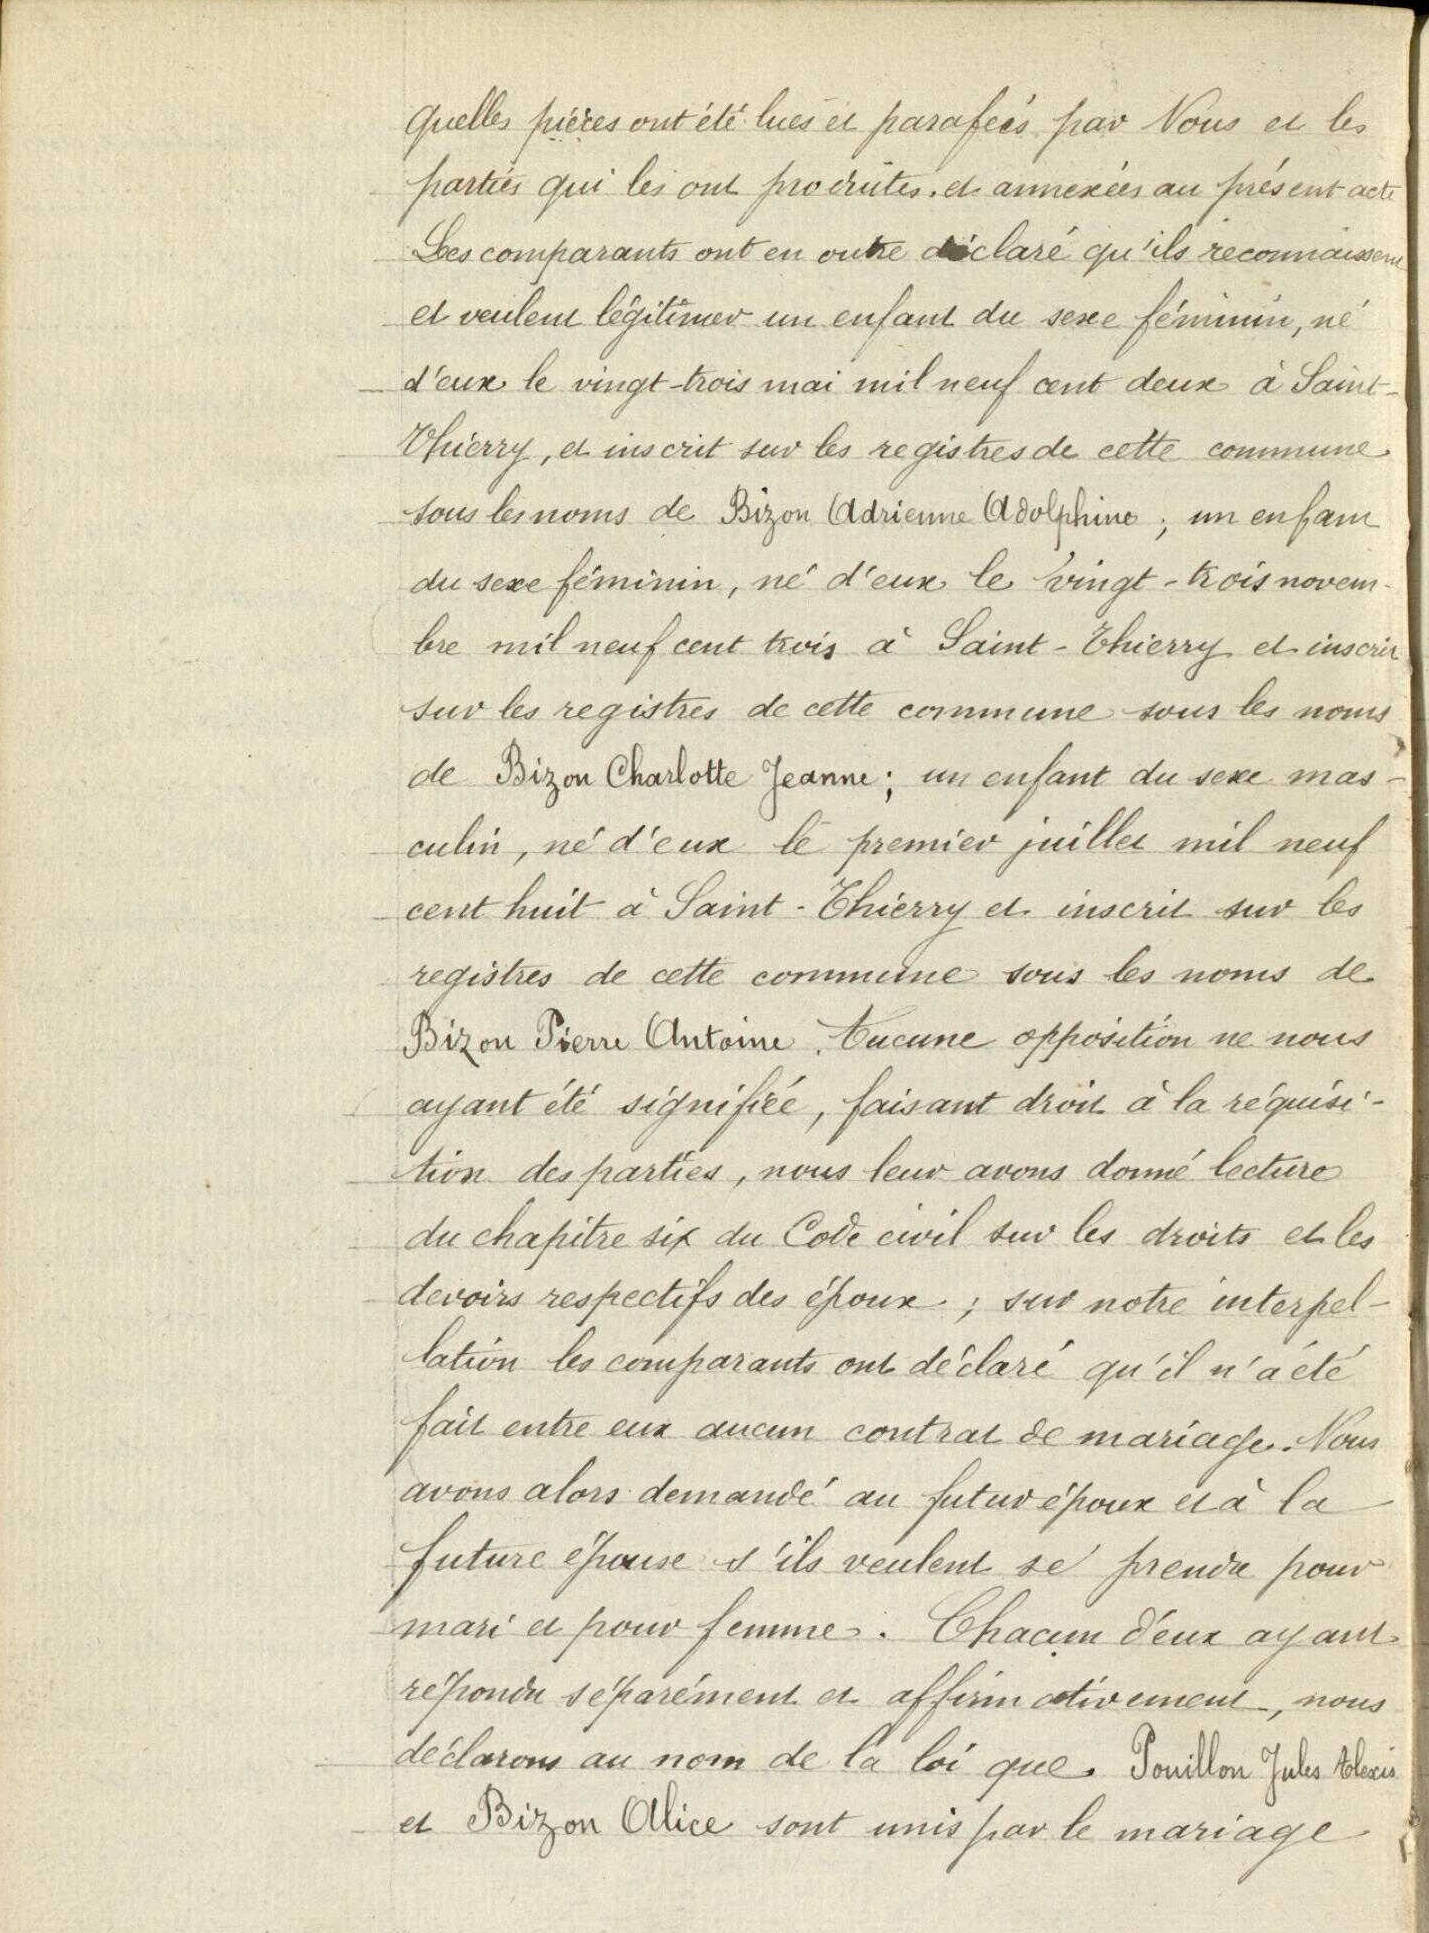 quelles pièces ont été lues et parafées par Nous et les
parties qui les ont produites et annexées au présent acte
Les comparants ont en outre déclaré qu'ils reconnaissent
et veulent légitimer un enfant du sexe féminin, né
d'eux le vingt-trois mai mil neuf cent deux à Saint-
Thierry, et inscrit sur les registres de cette commune
sous les noms de Bizon Adrienne Adolphine ; un enfant
du sexe féminin, né d'eux le vingt-trois novem-
bre mil neuf cent trois à Saint-Thierry et inscrit
sur les registres de cette commune sous les noms
de Bizon Charlotte Jeanne ; un enfant du sexe mas-
culin, né d'eux le premier juillet mil neuf
cent huit à Saint-Thierry et inscrit sur les
registres de cette commune sous les noms de
Bizon Pierre Antoine. Aucune opposition ne nous
ayant été signifiée, faisant droit à la réquisi-
tion des parties, nous leur avons donné lecture
du chapitre six du Code civil sur les droits et les
devoirs respectifs des époux ; sur notre interpel-
lation les comparants ont déclaré qu'il n'a été
fait entre eux aucun contrat de mariage. Nous
avons alors demandé au futur époux et à la
future épouse s'ils veulent se prendre pour
mari et pour femme. Chacun d'eux ayant
répondu séparément et affirmativement, nous
déclarons au nom de la loi que Pouillon Jules Alexis
et Bizon Alice sont unis par le mariage